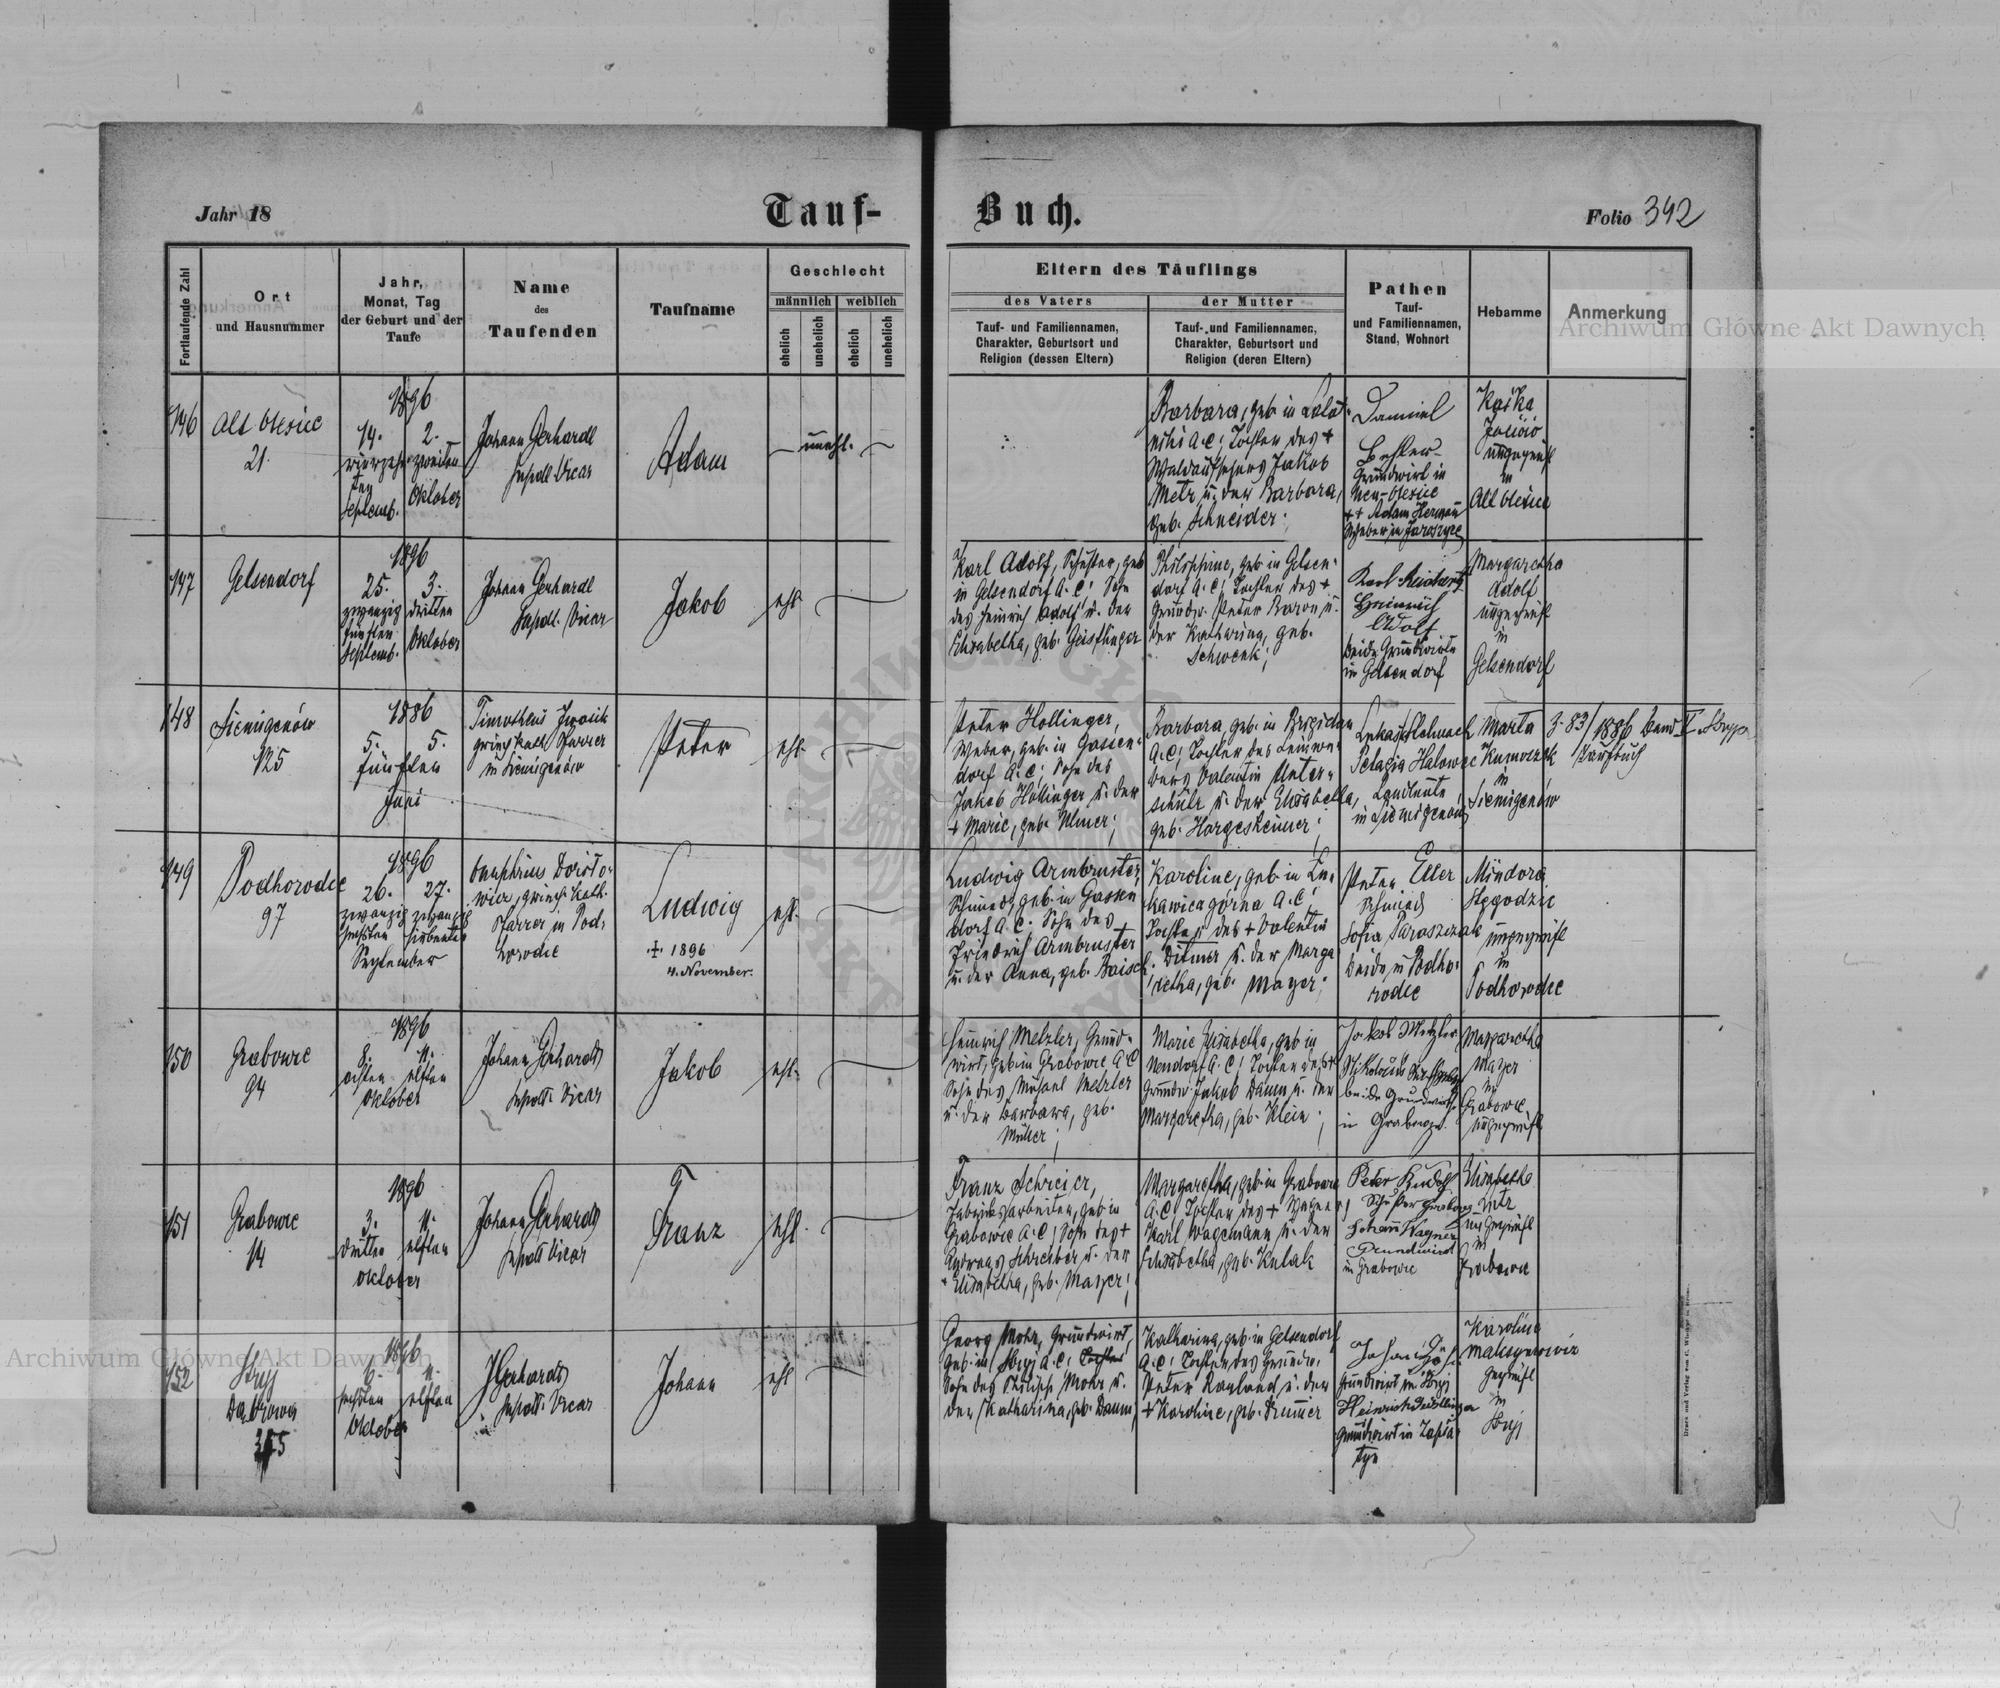 Jahr 18
Tauf-
Buch.
Folio 342
Fortlaufende Zahl
Ort
und Hausnummer
Jahr,
Monat, Tag
der Geburt und der
Taufe
Name
des
Taufenden
Taufname
Geschlecht
männlich
weiblich
ehelich
unehelich
ehelich
unehelich
Eltern des Täuflings
des Vaters
Tauf- und Familiennamen,
Charakter, Geburtsort und
Religion (dessen Eltern)
der Mutter
Tauf- und Familiennamen,
Charakter, Geburtsort und
Religion (deren Eltern)
Pathen
Tauf-
und Familiennamen,
Stand, Wohnort
Hebamme
Anmerkung
Archiwum Główne Akt Dawnych
146
Alt Olesice
21.
1896
14.
vierzehn
ten
Septemb.
2.
zweiten
Oktober
Johann Gerhardt
Vicar
Adam
unehl.
Barbara, geb. in
A.C; Tochter des +
Waldaufsehers Jakob
Metz u. der Barbara,
geb. Schneider;
Daniel
Grundwirt in
Neu-Olesice
++ Adam Herman
Weber in
Kaśka
ungeprüft
in
Alt Olesice
147
Gelsendorf
1896
25.
zwanzig
fünften
Septemb.
3.
dritten
Oktober
Johann Gerhardt
Vicar
Jakob
ehl.
Karl Adolf, Schuster, geb.
in Gelsendorf A.C; Sohn
des Heinrich Adolf u. der
Elisabetha, geb. Geislinger
Philippine, geb. in Gelsen-
dorf A.C; Tochter des +
Grundw. Peter Baron u.
der Katharina, geb.
Schwenk;
Karl
Heinrich
Adolf
beide Grundwirte
in Gelsendorf
Margaretha
Adolf
ungeprüft
in
Gelsendorf
148
Siemigenów
125
1886
5.
5.
fünften
Juni
Timotheus
griech. kath. Pfarrer
in Siemigenów
Peter
ehl.
Peter Hollinger,
Weber, geb. in Gassen-
dorf A.C; Sohn des
Jakob Hollinger u. der
+ Marie, geb. Ulmer;
Barbara, geb. in Brigidau
A.C; Tochter des Leinwe-
bers Valentin Unter-
schütz u. der Elisabetha,
geb. Hargesheimer;
Pelagia
Landleute
in Siemigenów
Marta
in
Siemigenów
z. 83/1886 Band II
Taufbuch
149
Podhorodce
97
1896
26.
zwanzig
sechsten
27.
zwanzig
siebenten
September
griech. kath.
Pfarrer in Pod-
horodce
Ludwig
+ 1896
4. November.
ehl.
Ludwig Armbruster,
Schmied, geb. in Gassen
dorf A.C; Sohn des
Friedrich Armbruster
u. der Anna, geb. Baisch
Karoline, geb. in
A.C;
Tochter des + Valentin
Ditmer u. der Marga
retha, geb. Mayer;
Peter Eller
Schmied
Sofia
beide in Podho-
rodce
ungeprüft
in
Podhorodce
150
Grabowce
94
1896
8.
achten
11.
elften
Oktober
Johann Gerhardt
Vicar
Jakob
ehl.
Heinrich Metzler, Grund-
wirt, geb. in Grabowce A.C
Sohn des Michael Metzler
u. der Barbara, geb.
Müller;
Marie Elisabetha, geb. in
Neudorf A.C; Tochter des +
Grundw. Jakob Daum u. der
Margaretha, geb. Klein;
Jakob Metzler
beide Grundwirte
in Grabowce.
Margaretha
Mayer
in
Grabowce
ungeprüft
151
Grabowce
14
1896
3.
dritten
11.
elften
Oktober
Johann Gerhardt
Vicar
Franz
ehl.
Franz Schreier,
Fabriksarbeiter, geb. in
Grabowce A.C; Sohn des +
Andreas Schreiber u. der
+ Elisabetha, geb. Mayer;
Margaretha, geb. in Grabowce
A.C; Tochter des +
Karl Wagemann u. der
Elisabetha, geb. Kulak
Peter Rudolf
Schuster
Johann Wagner
Grundwirt
in Grabowce
Elisabetha
ungeprüft
in
Grabowce
152
Stryj
Dabrowa
1896
6.
sechsten
11.
elften
Oktober
J Gerhardt
Vicar
Johann
ehl.
Georg Mohr, Grundwirt,
geb. in Stryj A.C; Tochter
Sohn des Philipp Mohr u.
der Katharina, geb. Daum
Katharina, geb. in Gelsendorf
A.C; Tochter des Grundw.
Peter Rauland u. der
+ Karoline, geb. Drumer
Grundwirt in Stryj
Grundwirt in
Karoline
geprüft
in
Stryj
Archiwum Główne Akt Dawnych